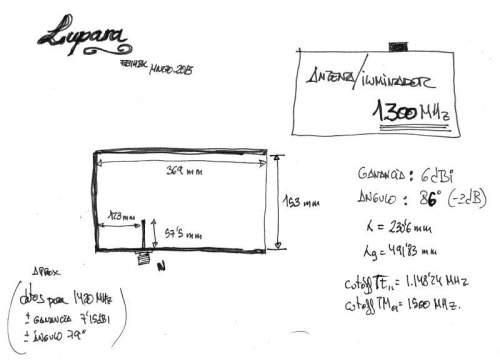 Lupara
MARZO-2015
ANTENA/ILUMINADOR
1.300 MHz
369 mm
153 mm
123 mm
57'5 mm
N
GANANCIA: 6dBi
ÁNGULO: 86° (-3dB)
λ = 230'6 mm
λg = 491'83 mm
cutoff TE11 = 1.148'24 MHz
cutoff TM01 = 1500 MHz.
APROX
datos para 1420 MHz
± GANANCIA 7'15dBi
± ÁNGULO 79°